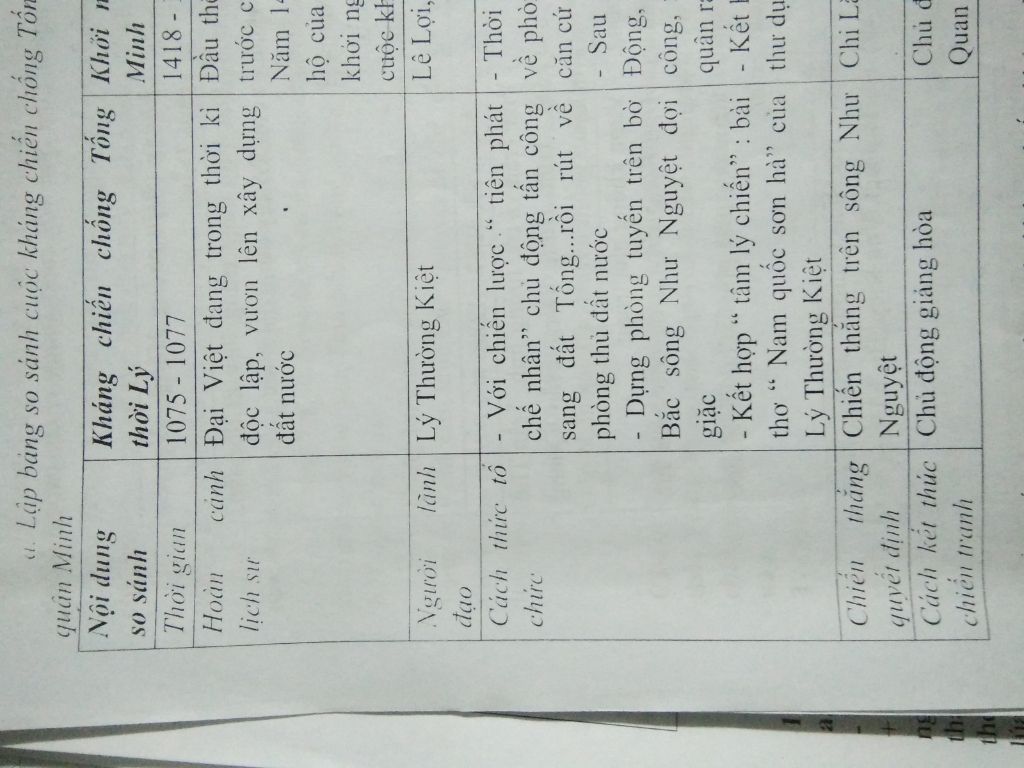 a. Lập bảng so sánh cuộc kháng chiến chống Tống
quân Minh
Nội dung
so sánh
Kháng chiến chống Tống
thời Lý
Khởi
Minh
Thời gian
1075 - 1077
1418 -
Hoàn cảnh
lịch sử
Đại Việt đang trong thời kì
độc lập, vươn lên xây dựng
đất nước
Đầu
trước
Năm
hộ của
khởi
cuộc
Người lãnh
đạo
Lý Thường Kiệt
Lê Lợi,
Cách thức tổ
chức
- Với chiến lược “ tiên phát
chế nhân” chủ động tấn công
sang đất Tống...rồi rút về
phòng thủ đất nước
- Dựng phòng tuyến trên bờ
Bắc sông Như Nguyệt đợi
giặc
- Kết hợp “ tâm lý chiến” : bài
thơ “ Nam quốc sơn hà” của
Lý Thường Kiệt
- Thời
về
căn cứ
- Sau
Động,
công,
quân
- Kết
thư
Chiến thắng
quyết định
Chiến thắng trên sông Như
Nguyệt
Chi
Cách kết thúc
chiến tranh
Chủ động giảng hòa
Chủ
Quan